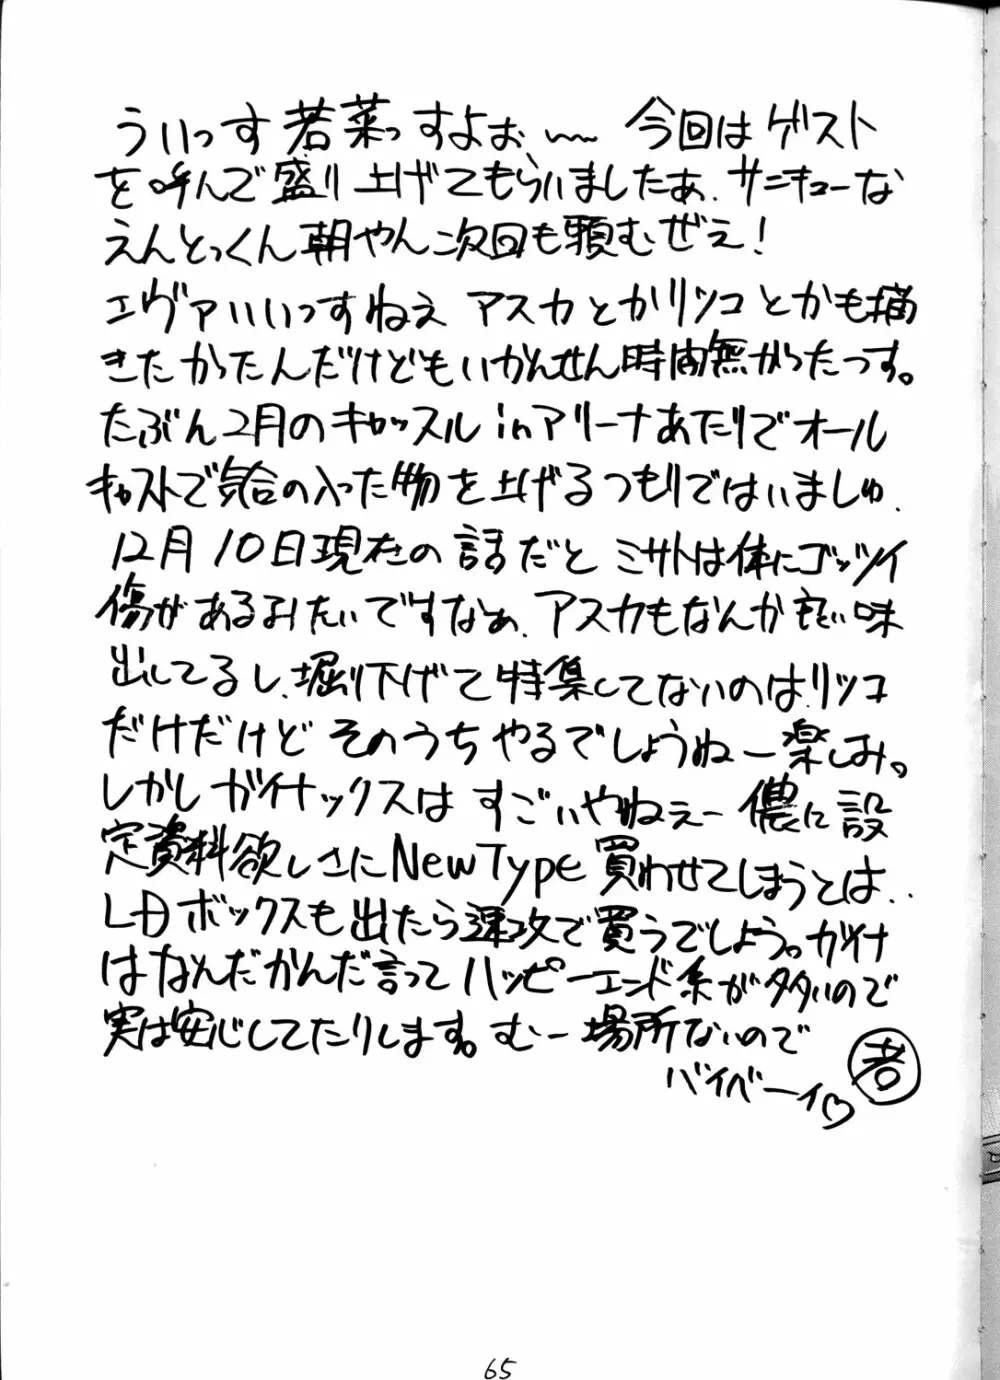 ういっす 若菜っすよぉ、〜 今回は ゲスト
を呼んで盛り上げてもらいましたぁ、サニキューな
えんとっくん朝やん次回も頼むぜえ!
エヴァいいっすねえ アスカとかリツコとかも描
きたかったんだけどもいかんせん時間無かったっす。
たぶん2月のキャッスル in アリーナあたりでオール
キャストで気合の入った物を上げるつもりではいましゅ.
12月10日現在の話だと ミサトは体にゴッツイ
傷があるみたいですなぁ、アスカもなんか良い味
出してるし、堀り下げて特集してないのはリツコ
だけだけど そのうちやるでしょうねー楽しみ。
しかしガイナックスは すごいやねえー 儂に設
定資料欲しさにNewType買わせてしまうとは..
LDボックスも出たら速攻で買うでしょう。ガイナ
はなんだかんだ言ってハッピーエンド系が多いので
実は安心してたりします。むー場所ないので
バイベーイ♡ 若
65